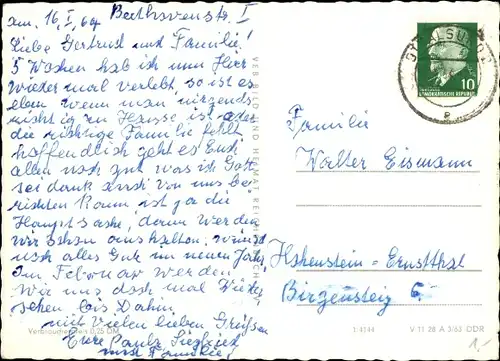 Am. 16. I. 64 Beethovenstr. I
Liebe Gertrud und Familie!
5 Wochen hab ich nun Herr
wieder mal verlebt, so ist es
eben wenn man nirgends
richtig zu Hause ist oder
die richtige Familie fehlt
hoffendlich geht es Euch
allen noch gut was ich Gott
sei dank auch von uns be-
richten kann ist ja die
Hauptsache, dann werden
wir schon aushalten, wünsch
noch alles Gute im neuen Jahr
Im Februar werden
wir uns doch mal Wieder
sehen bis Dahin
mit vielen lieben Grüßen
Eure Paula Siegfried
und Familie!
Verbraucherpreis 0,25 DM
VEB BILD UND HEIMAT REICHENBACH
10
DEMOKRATISCHE REPUBLIK
Familie
Walter Eismann
Hohenstein-Ernstthal
Birgensteig 6
1:4144
V 11 28 A 3/63 DDR